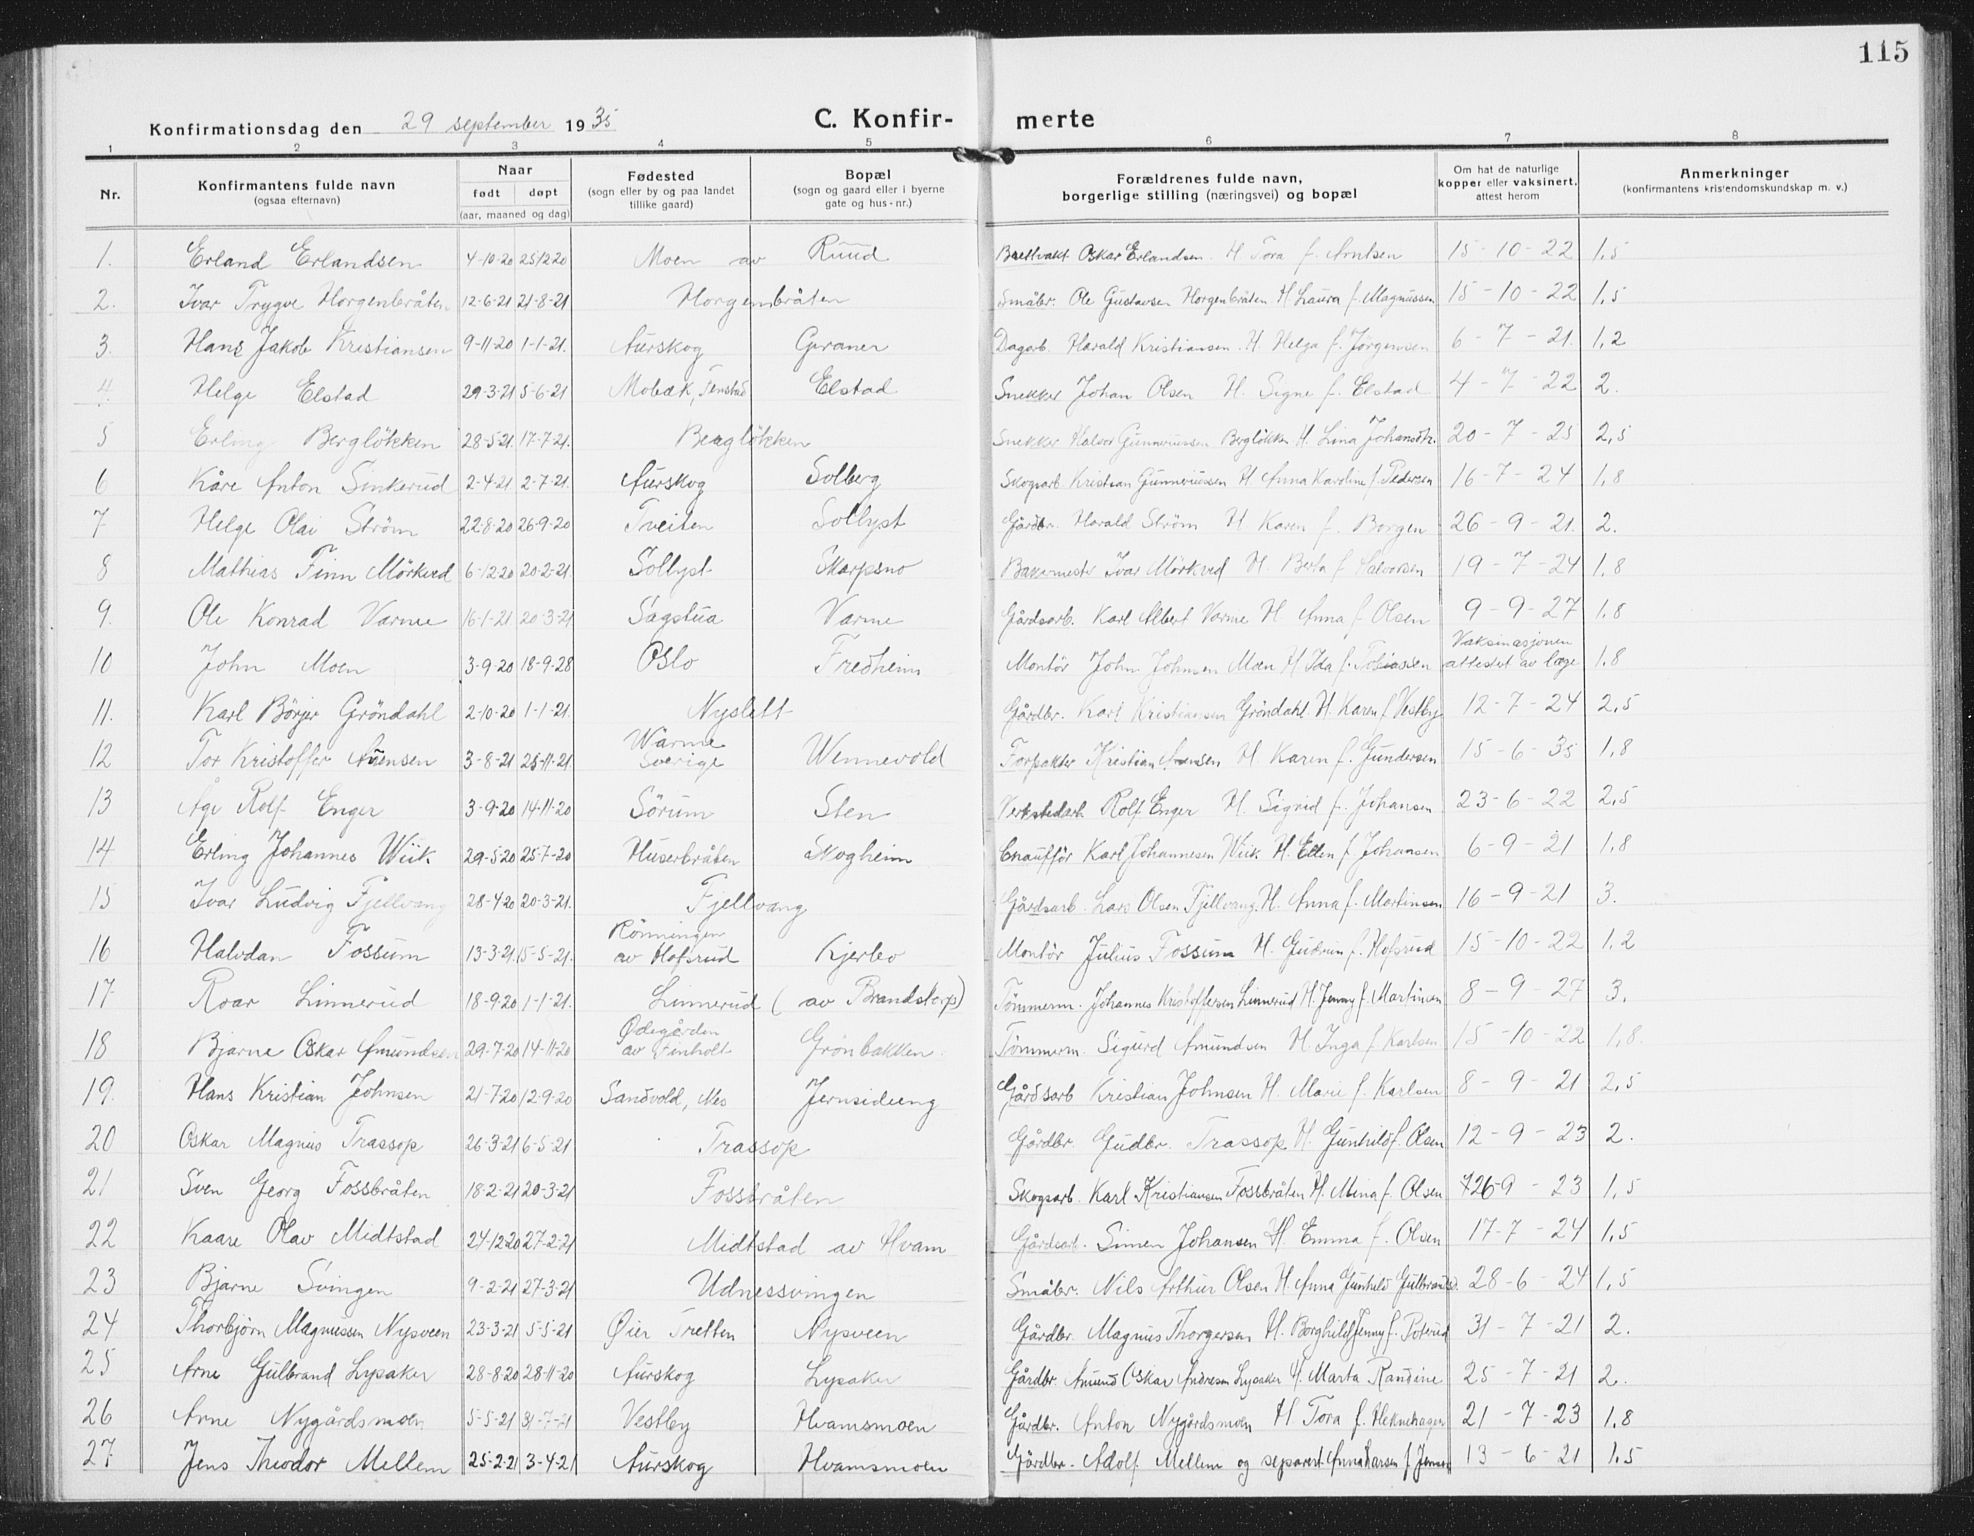 115
Konfirmationsdag den 29 september 1935 C. Konfir- merte
1 2 3 4 5 6 7 8
Nr. Konfirmantens fulde navn (ogsaa efternavn) Naar født døpt (aar, maaned og dag) Fødested (sogn eller by og paa landet tillike gaard) Bopæl (sogn og gaard eller i byerne gate og hus-nr.) Forældrenes fulde navn, borgerlige stilling (næringsvei) og bopæl Om hat de naturlige kopper eller vaksinert, attest herom Anmerkninger (konfirmantens kristendomskundskap m. v.)
1. Erland Erlandsen 4-10-20 25-12-20 Moen av Ruud Oskar Erlandsen. H. Tora f. Arntsen 15-10-22 1,5
2. Ivar Trygve Horgenbråten 12-6-21 21-8-21 Horgenbråten Småbr. Ole Gustavsen Horgenbråten H. Laura f. Magnussen 15-10-22 1,5
3. Hans Jakob Kristiansen 9-11-20 1-1-21. Aurskog Graner Dagarb. Harald Kristiansen. H. Helga f. Jörgensen 6-7-21. 1,2
4. Helge Elstad 29-3-21 5-6-21 Mobæk, Tenstad Elstad Snekker Johan Olsen H. Signe f. Elstad 4-7-22 2.
5 Erling Berglökken 28-5-21. 17-7-21. Berglökken Snekker Halvor Gunneriussen Berglökken H. Lina Johansdtr. 20-7-25 2,5
6 Kåre Anton Sinkerud 2-4-21 2-7-21. Aurskog Solberg Skogsarb. Kristian Gunneriussen H. Anna Karoline f. Pedersen 16-7-24 1,8
7 Helge Olai Ström 22-8-20 26-9-20 Tveiten Sollyst Gårdbr. Harald Ström H. Karen f. Borgen 26-9-21. 2.
8 Mathias Finn Mörkved 6-12-20 20-2-21. Sollyst Skarpsno Bakermester Ivar Mörkved H. Berta f. Halvorsen 19-7-24 1,8
9. Ole Konrad Varme 16-1-21 20-3-21 Sagstua Varme Gårdsarb. Karl Albert Varme H. Anna f. Olsen 9-9-27 1,8
10 John Moen 3-9-20 18-9-28 Oslo Fredheim Montör John Johnsen Moen H. Ida f. Tobiassen Vaksinasjonen attestet av læge 1,8
11. Karl Börjer Gröndahl 2-10-20 1-1-21. Nyslett Gårdbr. Karl Kristiansen Gröndahl. H. Karen f. Vestby 12-7-24 2,5
12 Tor Kristoffer Auensen 3-8-21 25-11-21. Warme Sverige Wennevold Forpakter Kristian H. Karen f. Gundersen 15-6-35 1,8
13 Åge Rolf Enger 3-9-20 14-11-20 Sörum Sten Verkstedarb. Rolf Enger H. Sigrid f. Johansen 23-6-22 2,5
14 Erling Johannes Wiik 29-5-20 25-7-20 Huserbråten Skogheim Chaufför Karl Johannesen Wiik H. Ellen f. Johansen 6-9-21 1,8
15 Ivar Ludvig Fjellvang 28-4-20 20-3-21. Fjellvang Gårdsarb. Lars Olsen Fjellvang. H. Anna f. Martinsen 16-9-21 3.
16 Halvdan Fossum 13-3-21. 15-5-21. Rönningen av Hofsrud Kjerbo Montör Julius Fossum H. Gudrun f. Hofsrud 15-10-22 1,2
17 Roar Linnerud 18-9-20 1-1-21. Linnerud (av Brandstorp) Tömmerm. Johannes Kristoffersen Linnerud H. Jenny f. Martinsen 8-9-27 3.
18 Bjarne Oskar Amundsen 29-7-20 14-11-20 Ødegården av Finholt Grönbakken. Tömmerm. Sigurd Amundsen H. Inga f. Karlsen 15-10-22 1,8.
19. Hans Kristian Johnsen 21-7-20 12-9-20 Sandvold, Nes Jernsideeng Gårdsarb Kristian Johnsen H. Marie f. Karlsen 8-9-21 2,5
20 Oskar Magnus Trassop 26-3-21 6-5-21 Trassop Gårdbr. Gudbr. Trassop H. Gunhild f. Olsen 12-9-23 2.
21 Sven Georg Fossbråten 18-2-21 20-3-21 Fossbråten Skogsarb. Karl Kristiansen Fossbråten H. Mina f. Olsen 26-9-23 1,5
22 Kaare Olav Midtstad 24-12-20 27-2-21 Midtstad av Hvam Gårdsarb. Simen Johansen H. Emma f. Olsen 17-7-24 1,5
23 Bjarne Svingen 9-2-21 27-3-21 Udnessvingen Småbr. Nils Arthur Olsen H. Anna Gunhild Gulbrands. 28-6-24 1,5
24 Thorbjörn Magnussen Nysveen 23-3-21 5-5-21 Øier Tretten Nysveen Gårdbr. Magnus Thorgersen H. Borghild Jenny f. Poterud 31-7-21 2.
25 Arne Gulbrand Lysaker 28-8-20 28-11-20 Aurskog Lysaker Gårdbr. Amund Oskar Andresen Lysaker H. Marta Randine 25-7-21 2.
26 Arne Nygårdsmoen 5-5-21 31-7-21 Vestby Hvamsmoen Gårdbr. Anton Nygårdsmoen H. Tora f. Heknehagen 21-7-23 1,8
27 Jens Theodor Mellem 25-2-21 3-4-21 Aurskog Hvamsmoen Gårdbr. Adolf Mellem og separert Anna Karsen f. Jensen 13-6-21 1,5